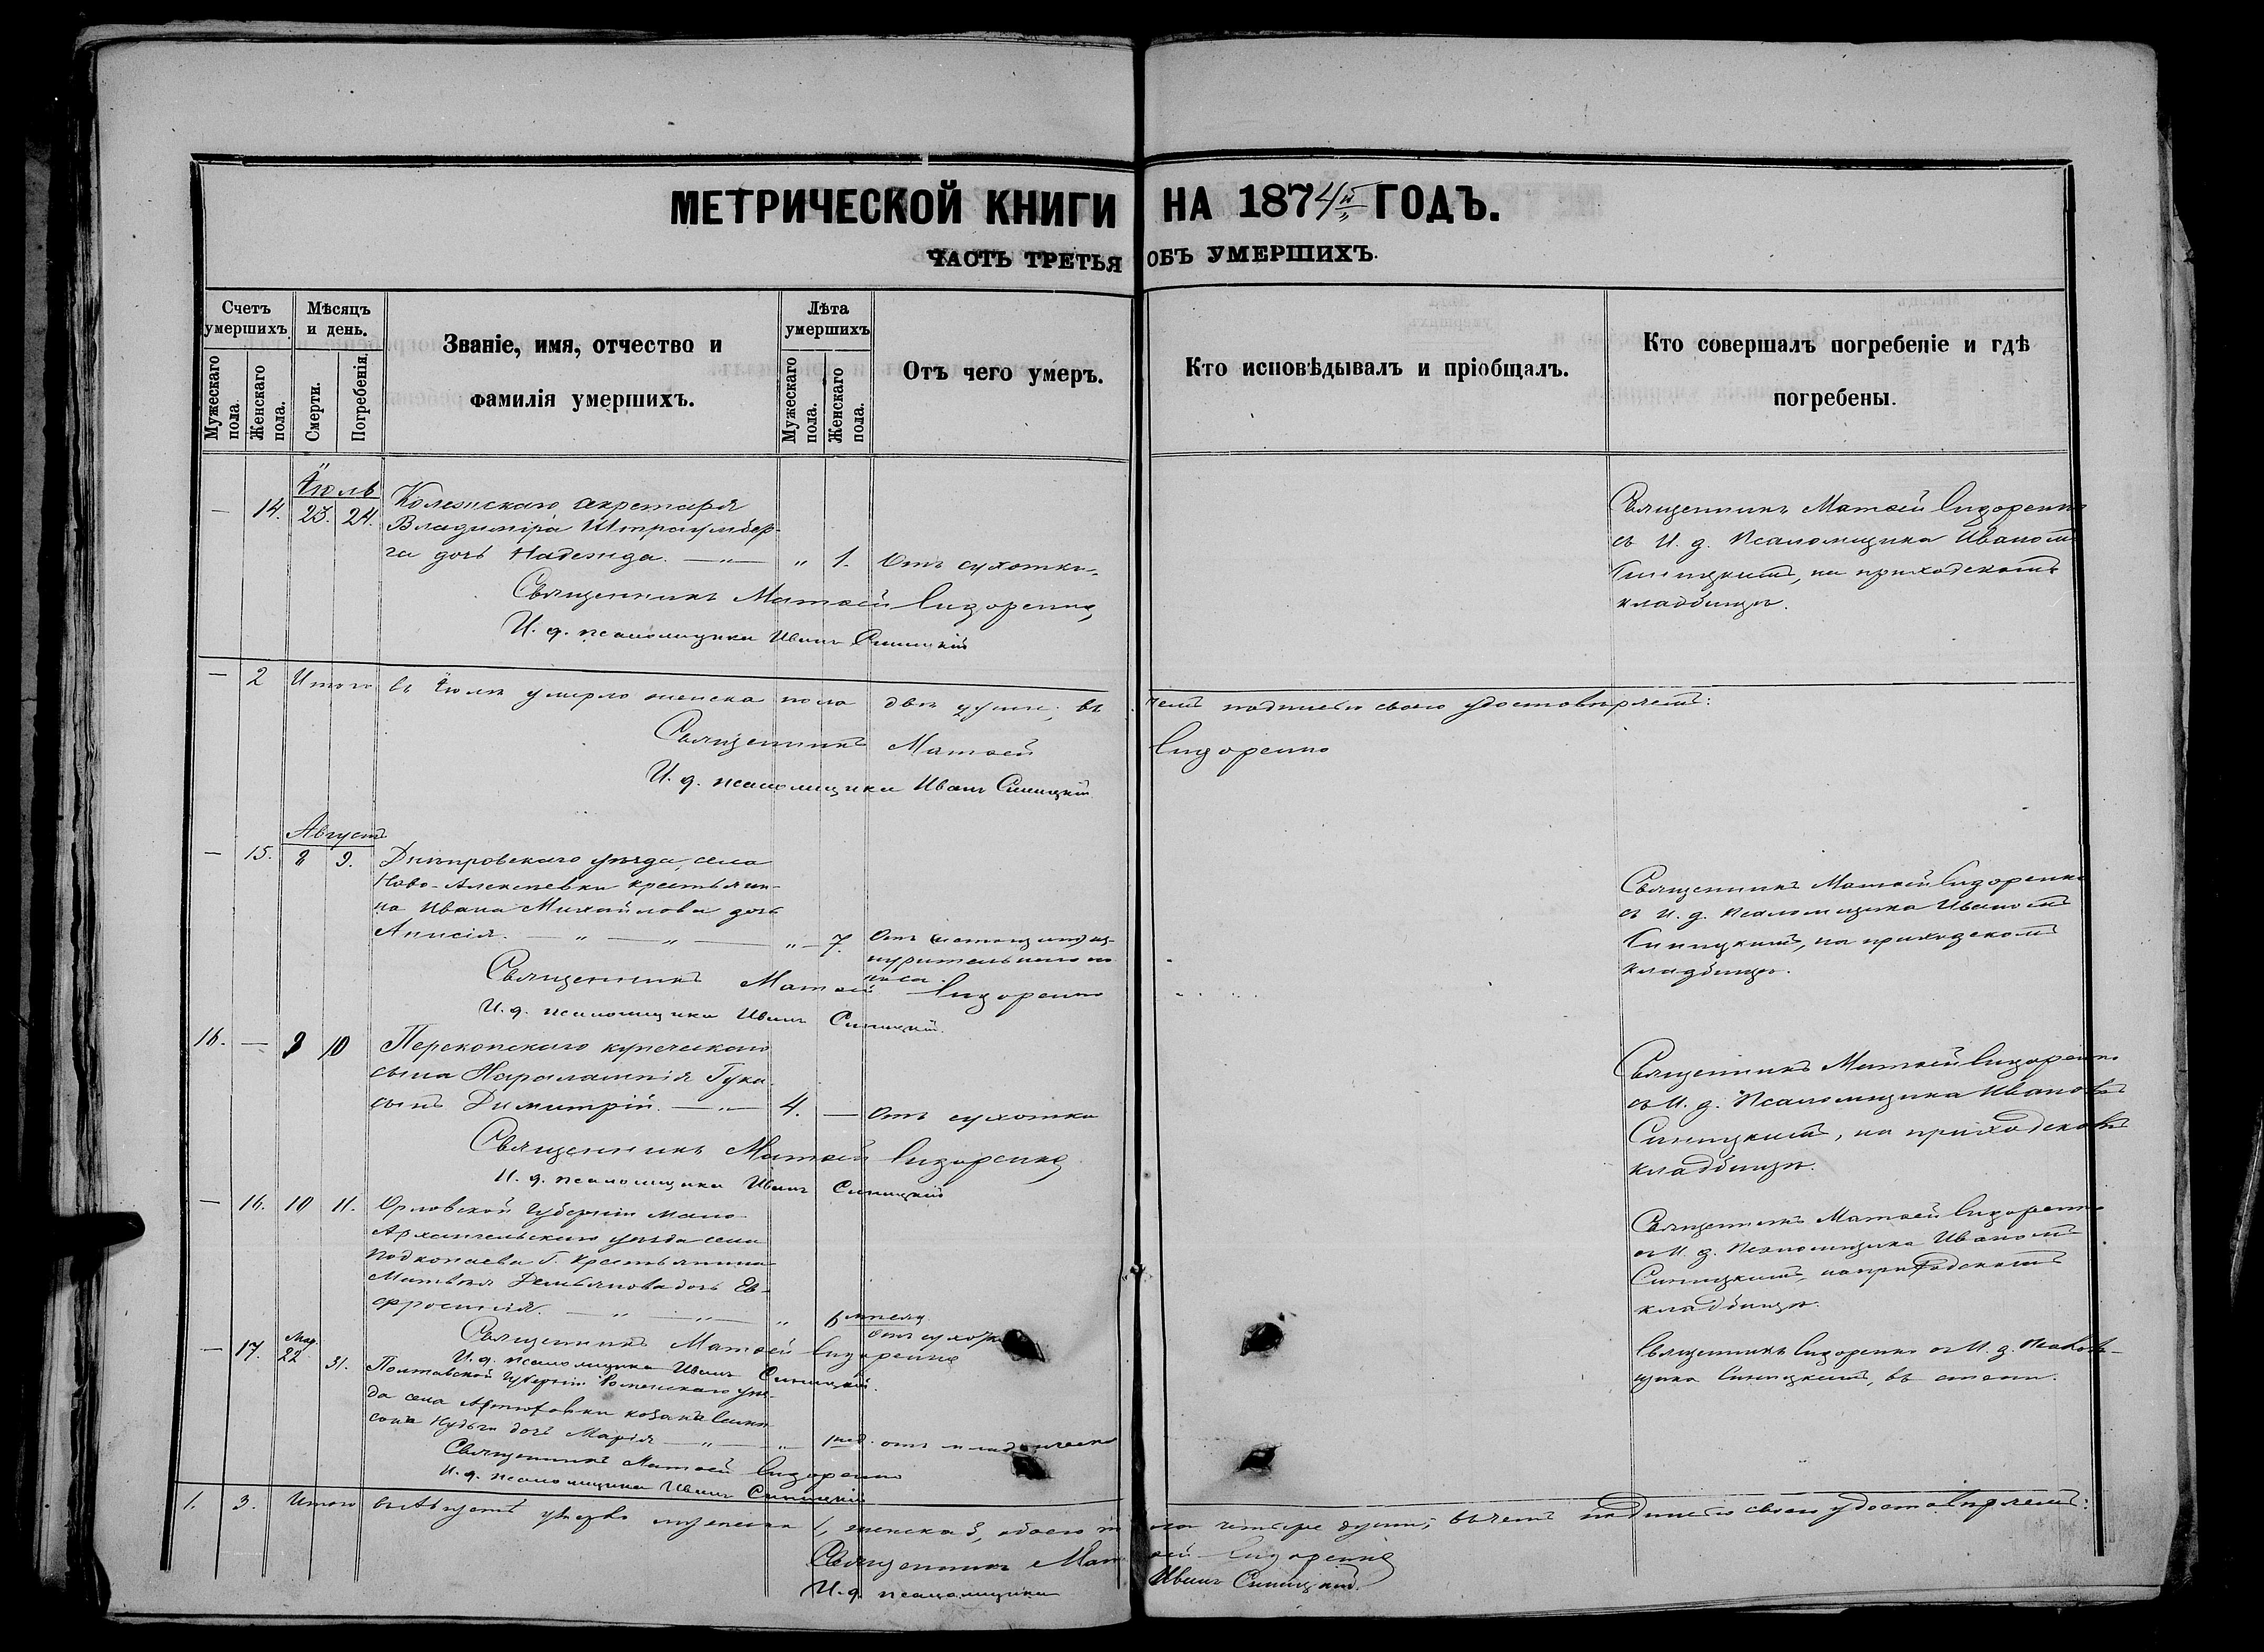 МЕТРИЧЕСКОЙ КНИГИ НА 1874й ГОДЪ.
ЧАСТЬ ТРЕТЬЯ ОБЪ УМЕРШИХЪ.
Счетъ умершихъ.
Мужескаго пола.
Женскаго пола.
Мѣсяцъ и день.
Смерти.
Погребенія.
Званіе, имя, отчество и
фамилія умершихъ.
Лѣта умершихъ
Мужескаго пола.
Женскаго пола.
Отъ чего умеръ.
Кто исповѣдывалъ и пріобщалъ.
Кто совершалъ погребеніе и гдѣ
погребены.
Іюль
— 14. 23. 24. Колежскаго секретаря
Владиміра Штраумбер-
га дочь Надежда. — „ — „ 1. Отъ сухотки
Священникъ Матѳей Сидоренко
И. д. псаломщика Иванъ Синицкій
Священникъ Матѳей Сидоренко
съ И. д. Псаломщика Иваномъ
Синицкимъ, на приходскомъ
кладбищѣ.
— 2 Итого въ Іюлѣ умерло женска пола двѣ души; въ чемъ подписью своею удостовѣряемъ:
Священникъ Матѳей Сидоренко
И. д. псаломщика Иванъ Синицкій
Августъ
— 15. 8 9. Днѣпровскаго уѣзда, села
Ново-Алексѣевки крестьяни-
на Ивана Михайлова дочь
Анисія. — „ — „ — „ — 7. Отъ
изнурительнаго по
носа.
Священникъ Матѳей Сидоренко
И. д. псаломщика Иванъ Синицкій.
Священникъ Матѳей Сидоренко
съ И. д. Псаломщика Иваномъ
Синицкимъ, на приходскомъ
кладбищѣ.
16. — 9 10 Перекопскаго купеческаго
сына Харалампія Гука
сынъ Димитрій. — „ — 4. — Отъ сухотки
Священникъ Матѳей Сидоренко
И. д. псаломщика Иванъ Синицкій
Священникъ Матѳей Сидоренко
съ И. д. Псаломщика Иваномъ
Синицкимъ, на приходскомъ
кладбищѣ.
— 16. 10 11. Орловской Губерніи Мало
Архангельскаго уѣзда села
Подкопаева Г. Крестьянина
Матвѣя Демьянова дочь Ев-
фросинія. — „ — „ — „ 6 недѣл. Отъ сухотки
Священникъ Матѳей Сидоренко
И. д. псаломщика Иванъ Синицкій.
Священникъ Матѳей Сидоренко
съ И. д. Псаломщика Иваномъ
Синицкимъ, на приходскомъ
кладбищѣ.
— 17. 22 31. Полтавской Губерніи Роменскаго уѣз-
да села козака
дочь Марія — „ — „ 1 нед. отъ
Священникъ Матѳей Сидоренко
И. д. псаломщика Иванъ Синицкій
Священникъ Сидоренко съ И. д. Псалом-
щика Синицкимъ, въ степи.
1. 3. Итого въ Августѣ умерло мужеска 1, женска 3, обоего пола четыре души; въ чемъ подписью своею удостовѣряемъ:
Священникъ Матѳей Сидоренко
И. д. псаломщика Иванъ Синицкій.